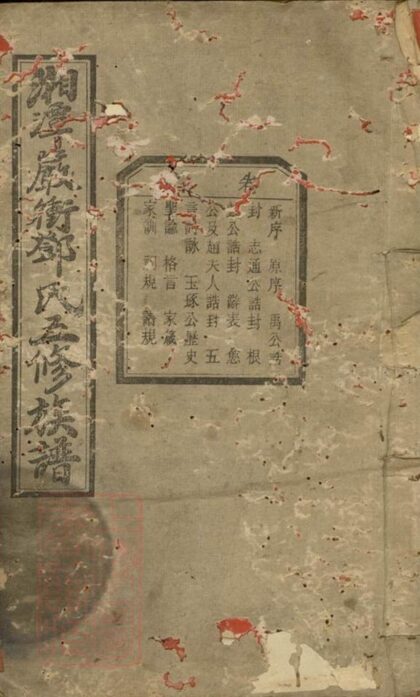 湘潭嚴衝鄧氏五修族譜
新序 原序 禹公誥
封 志通公誥封 根
公誥封 辭表 愈
公及妣夫人誥封 五
言詩詠 玉琢公歷史
聖諭 格言 家箴
家訓 規 諸規